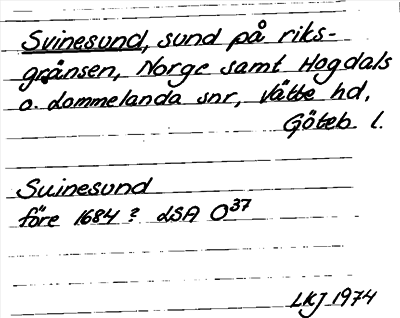 Svinesund, sund på riks-
gränsen, Norge samt Hogdals
o. Lommelanda snr, Vätte hd,
Göteb l.
Suinesund
före 1684? LSA O37
LKJ 1974